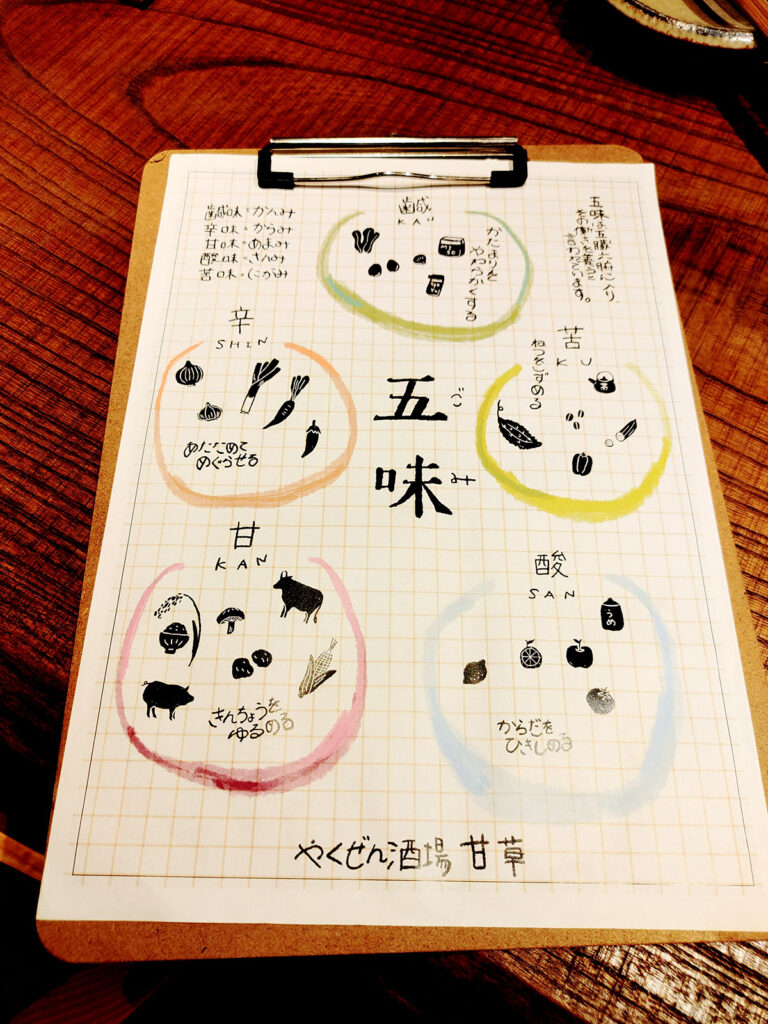 鹹味=かんみ
辛味=からみ
甘味=あまみ
酸味=さんみ
苦味=にがみ
鹹
KAN
かたまりを
やわらかくする
五味は五臓六腑に入り、
その働きを養うと
言われています。
辛
SHIN
あたためて
めぐらせる
五味
ごみ
苦
KU
ねつをしずめる
甘
KAN
きんちょうを
ゆるめる
酸
SAN
うめ
からだを
ひきしめる
やくぜん酒場 甘草